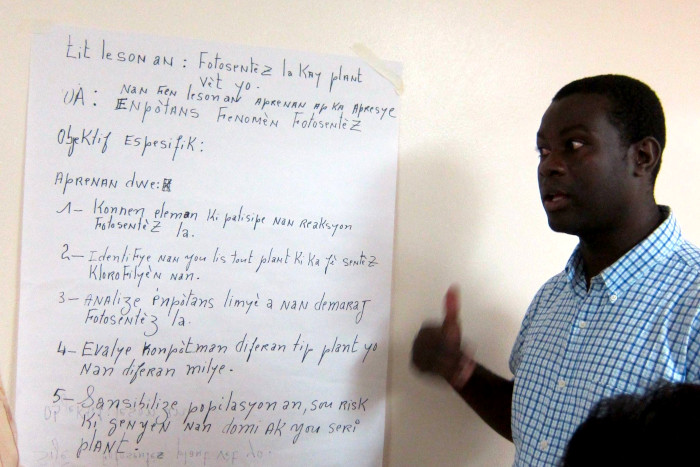 tit leson an : Fotosentèz la Kay plant
vèt yo.
OA : nan fen leson an aprenan ap ka apresye
Enpòtans Fenomèn Fotosentèz
Objektif Espesifik :
Aprenan dwe :
1- Konnen eleman ki patisipe nan reaksyon
Fotosentèz la.
2- Identifye nan you lis tout plant ki ka fè sentèz
Klorofilyèn nan.
3- Analize enpòtans limyè a nan demaraj
Fotosentèz la.
4- Evalye konpòtman diferan tip plant yo
nan diferan milye.
5- Sansibilize popilasyon an, sou risk
ki genyen nan domi ak you seri
plant.